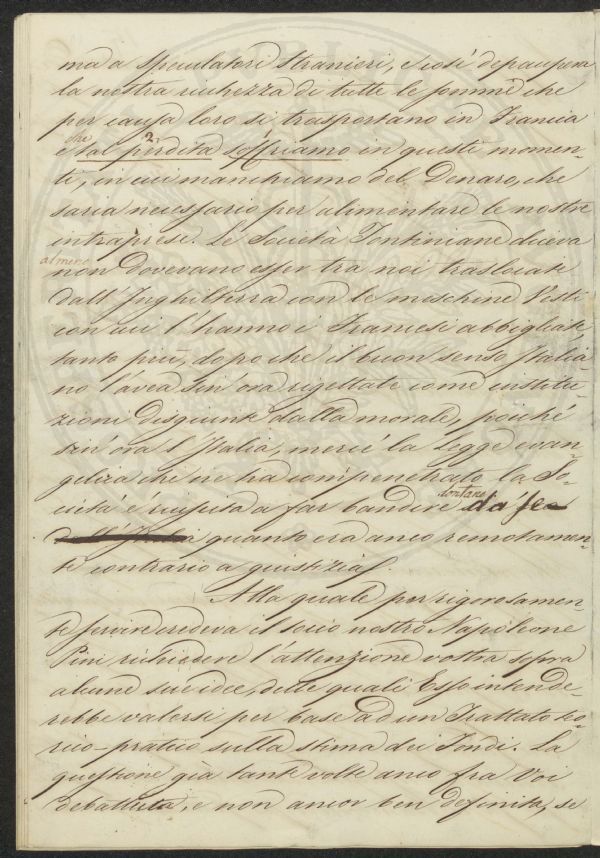 ma a Speculatori Stranieri, e così depaupera
la nostra ricchezza di tutte le somme che
per causa loro si trasportano in Francia
che
e tal perdita soffriamo in questi momen-
2
ti, in cui manchiamo del Denaro, che
saria necessario per alimentare le nostre
intraprese. Le Società Tontiniane diceva
almeno
non dovevano esser tra noi traslocate
dall'Inghilterra con le meschine Vesti
con cui l'hanno i Francesi abbigliate
tanto più, dopo che il buon senso Italia-
no l'avea sin'ora rigettate come institu-
zioni disgiunte dalla morale, poiché
sin'ora l'Italia, mercé la Legge evan-
gelica che ne ha compenetrato la So-
cietà è riuscita a far bandire
lontano
da se
quanto era anco remotamen-
te contrario a giustizia.
Alla quale per rigorosamen-
te servire credeva il socio nostro Napoleone
Pini richiedere l'attenzione vostra sopra
alcune sue idee, delle quali Esso intende-
rebbe valersi per base ad un Trattato teo-
rico-pratico sulla stima dei Fondi. La
questione già tante volte anco fra Voi
debattuta, e non ancor ben definita, se